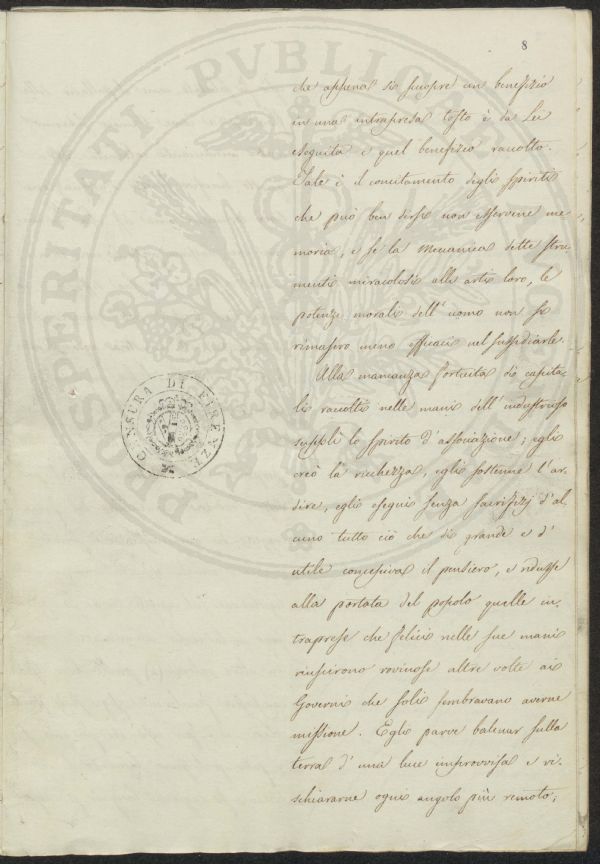 8
che appena si scuopre un benefizio
in una intrapresa tosto è da Lei
eseguita e quel benefizio raccolto.
Tale è il concitamento degli spiriti
che può ben dirsi non esservene me-
moria, e se la Meccanica dette stru-
menti miracolosi alle arti loro, le
potenze morali dell'uomo non si
rimasero meno efficaci nel sussidiarle.
Alla mancanza fortuita di capita-
li raccolti nelle mani dell'industrioso
supplì lo spirito d'associazione; egli
creò la ricchezza, egli sostenne l'ar-
dire, egli eseguì senza sacrifizj d'al-
cuno tutto ciò che di grande e d'
utile concepiva il pensiero, e ridusse
alla portata del popolo quelle in-
traprese che felici nelle sue mani
riuscirono rovinose altre volte ai
Governi che soli sembravano averne
missione. Egli parve balenar sulla
terra d'una luce improvvisa e ri-
schiararne ogni angolo più remoto;
CENSURA DI FIRENZE
PROSPERITATI PVBLICAE